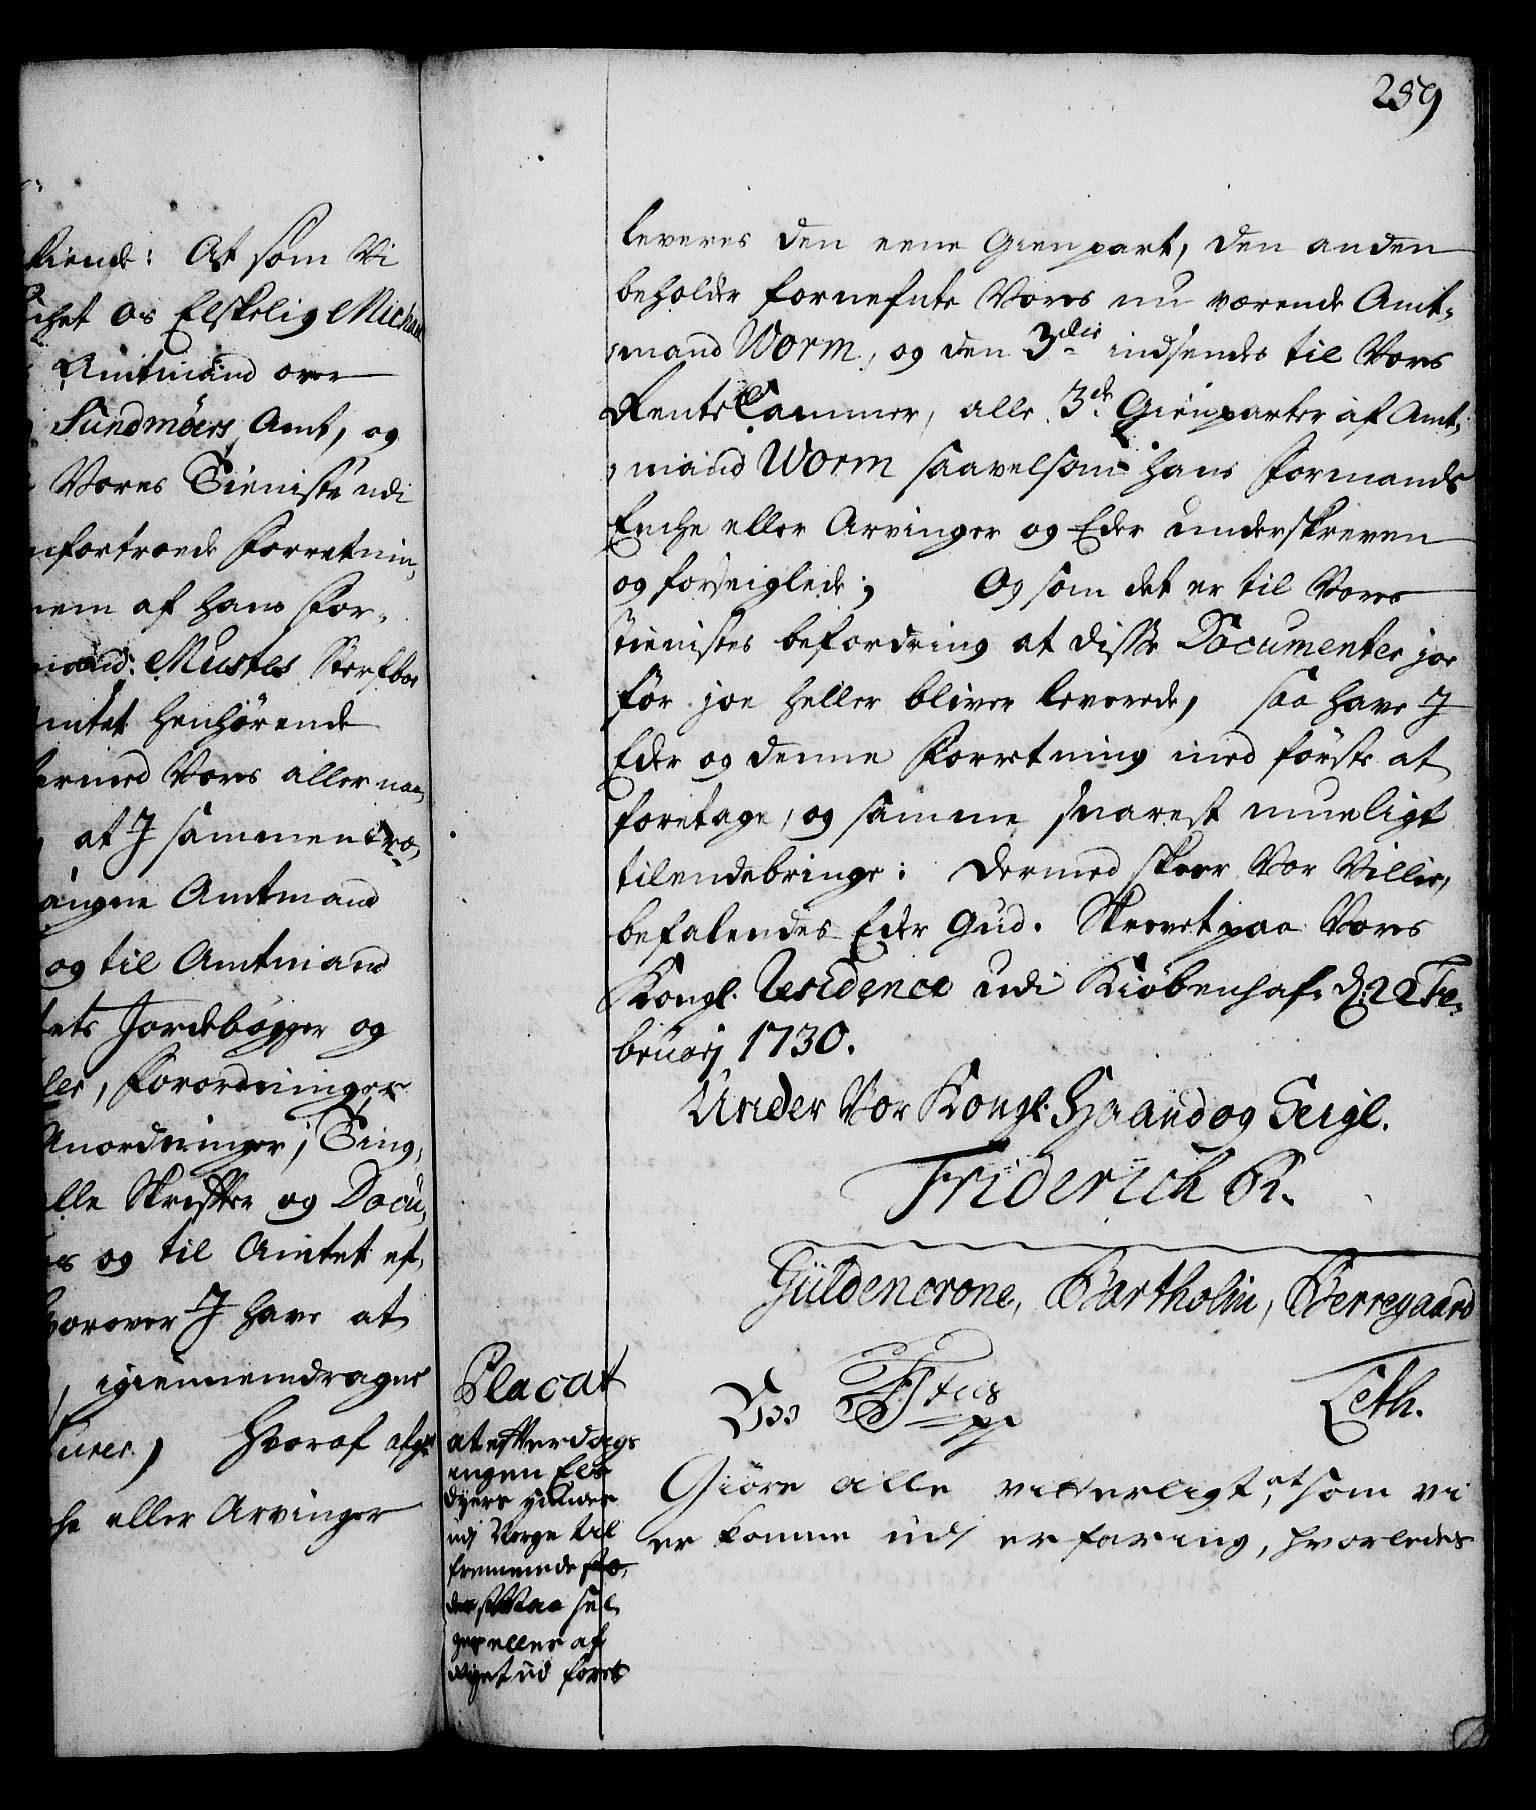 259
kiende: At som Vi
Os Elskelig Michael
Amtmand over
Sundmöers Amt, og
Vores Tieniste udi
anfortroede Forretnin,
nem af hans For,
mand: Mustes Sterfboe
Amtet henhörende
hermed Vores aller naa,
at J sammentræ,
Amtmand
og til Amtmand
Jordebögger og
ler, Forordninger
Anordninger, Ting,
alle Skrifter og Docu,
og til Amtet ef,
hvorover J have at
igiennemdragne
hvoraf
eller Arvinger
leveres den eene Gienpart, den anden
beholder fornefnte Vores nu værende Amt,
mand Worm, og den 3die indsendes til Vores
RenteCammer, alle 3de Gienparter af Amt,
mand Worm saavelsom hans Formands
Enche eller Arvinger og Eder underskreven
og forseiglede; Og som det er til Vores
Tienistes befordring at disse Documenter joe
för joe heller bliver leverede, saa have J
Eder og denne Forretning med förste at
foretage, og samme snarest mueligt
tilendebringe: Dermed skeer Vor Villie,
befalendes Eder Gud. Skrevet paa Vores
Kongl. Residence udi Kiöbenhafn d: 22 Fe,
bruarj 1730.
Under Vor Kongl. Haand og Seigl.
Friderich R.
Güldencrone, Bartholin, Berregaard
Leth.
Placat
at efterdags
ingen Els
dyers
udj Norge til
fremmede stæ,
der maa sæl,
ges eller af
Riget ud föres
Vos F 4tus pp
Giöre alle vitterligt, at som vi
er komme udj erfaring, hvorledes